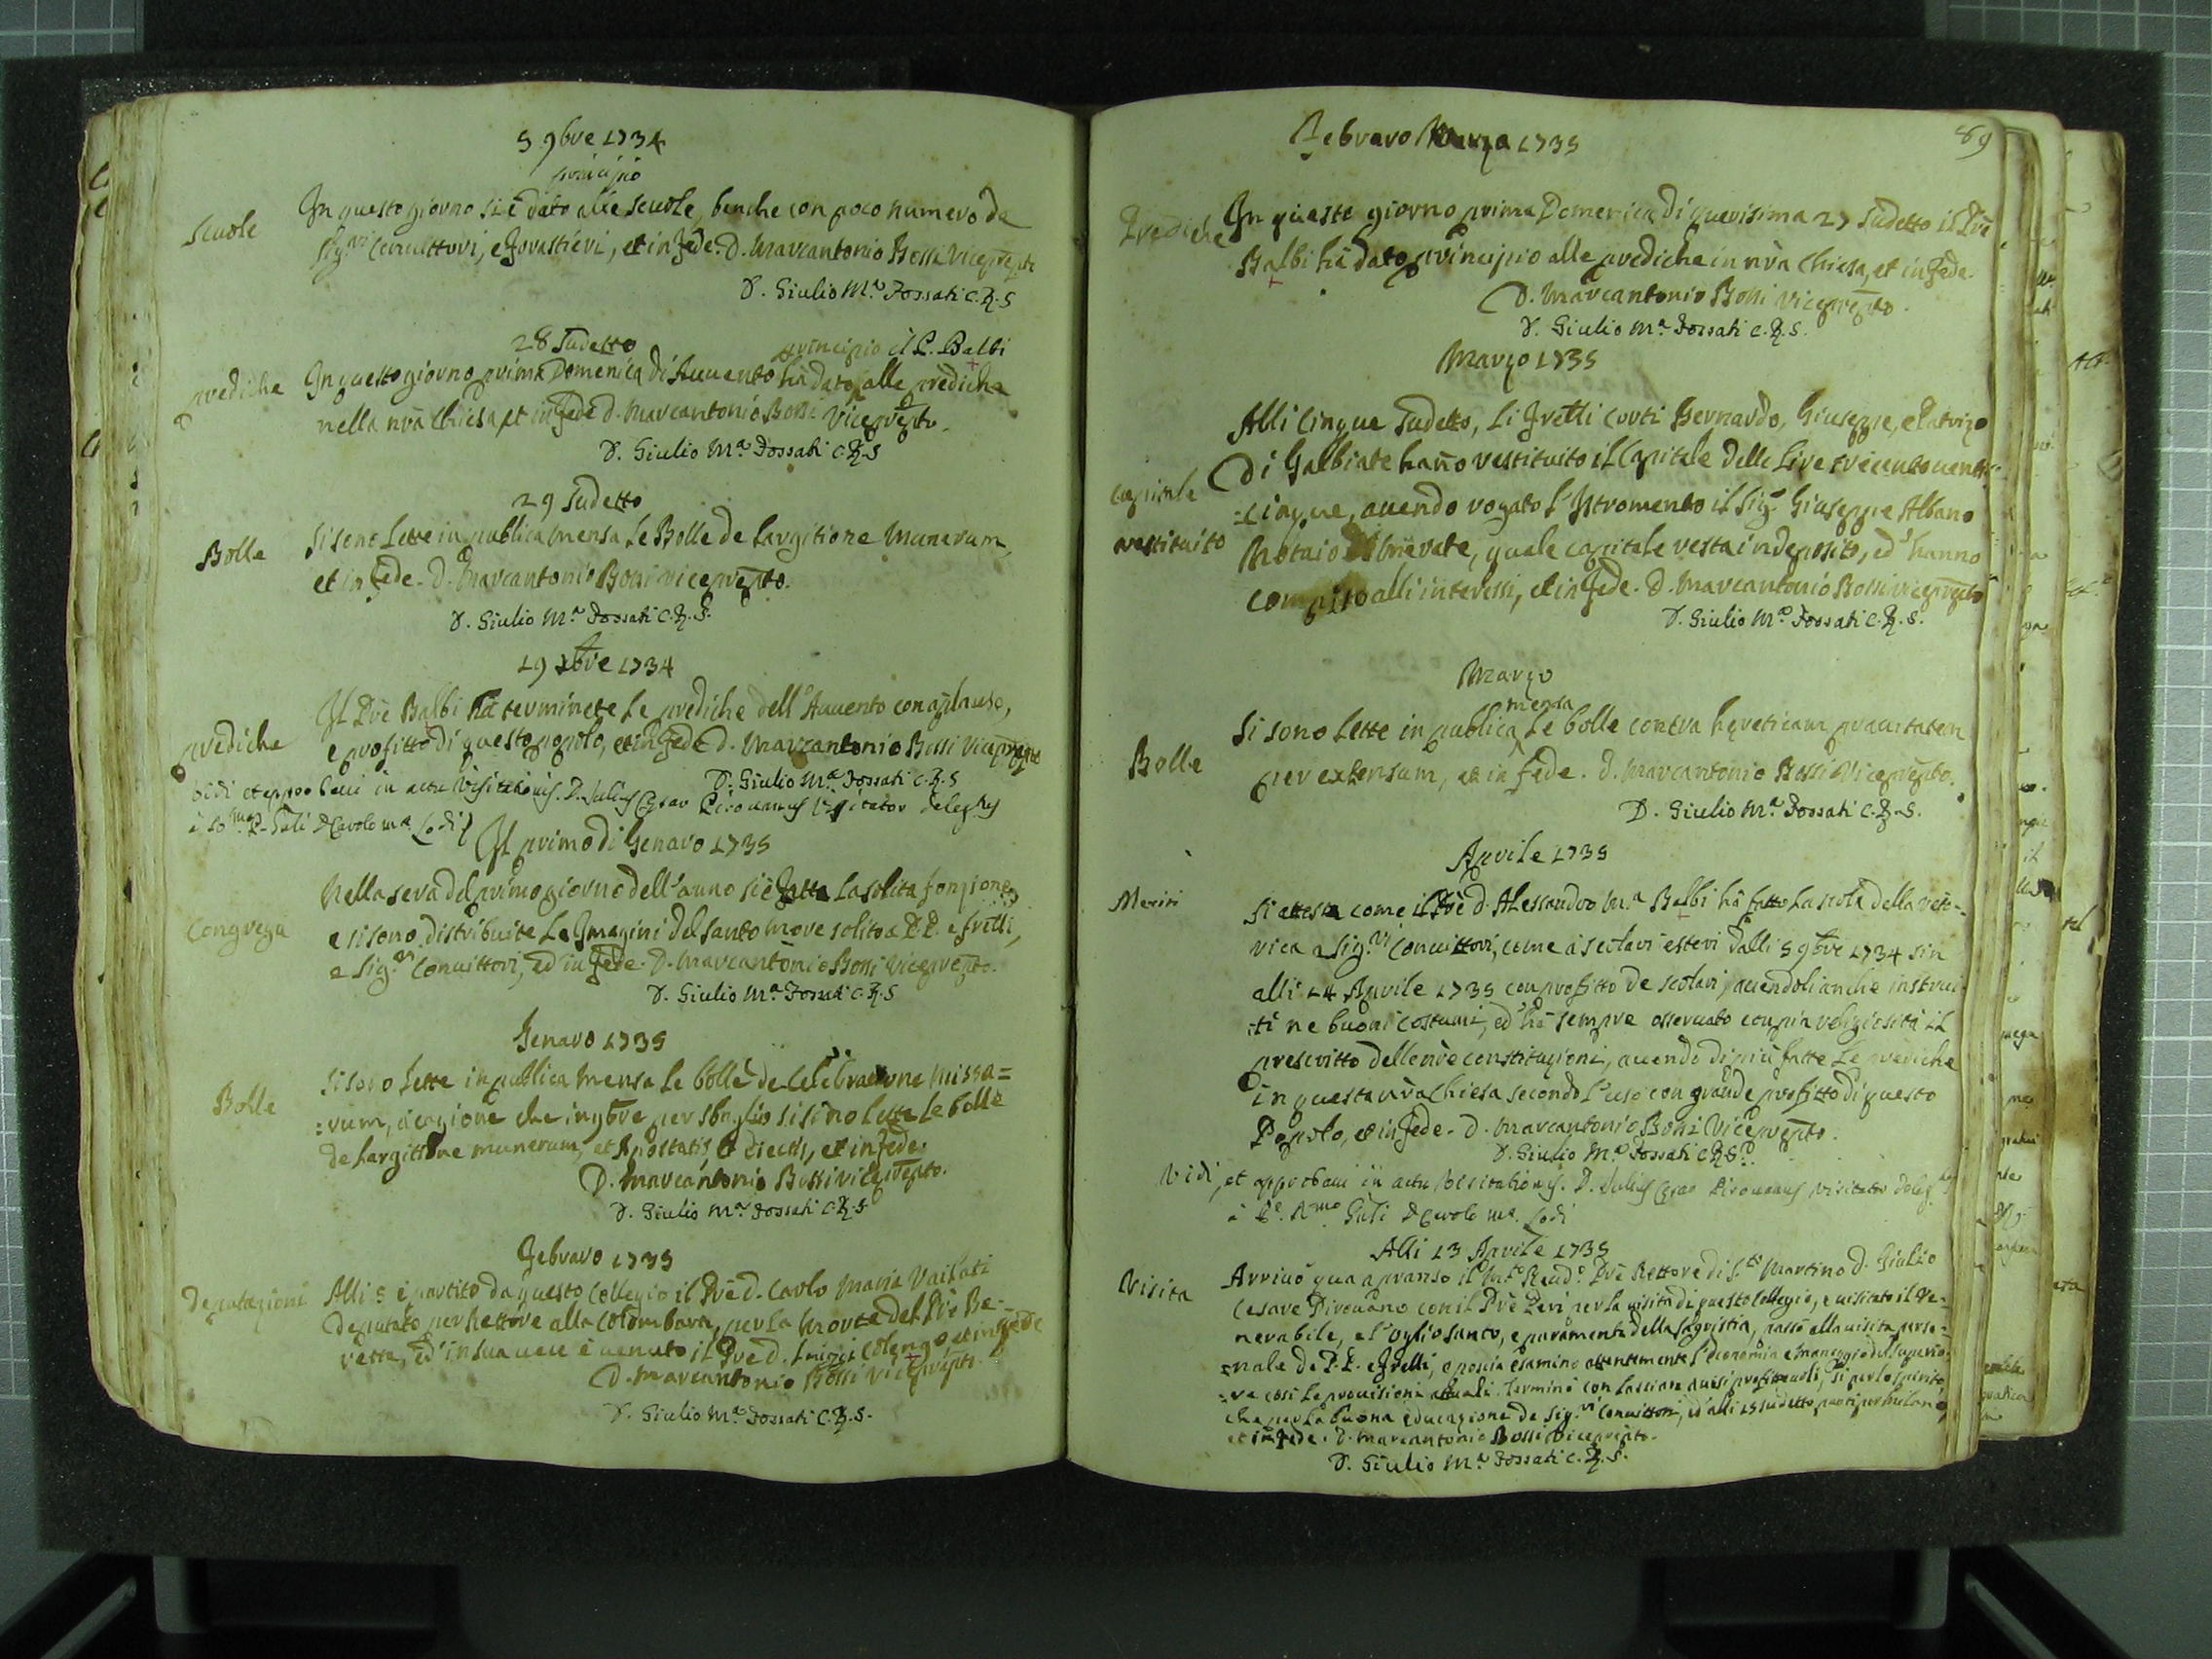 5 9bre 1734
principio
scuole
In questo giorno si è dato alle scuole, benche con poco numero de
sig.ri Conuittori, e forastieri, et in fede. D. Marcantonio Bossi Viceprep.to
D. Giulio M.a Fossati C.R.S
28 Sudetto
principio il P. Balbi
prediche
In questo giorno prima Domenica di Auuento hà dato alle prediche
nella nrã Chiesa, et in fede D. Marcantonio Bossi Viceprep.to.
D. Giulio M.a Fossati C.R.S
29 Sudetto
Bolle
Si sono lette in publica mensa le Bolle de largitione munerum,
et in fede. D. Marcantonio Bossi viceprep.to.
D. Giulio M.a Fossati C.R.S.
19 Xbre 1734
prediche
Il Prẽ Balbi hà terminate le prediche dell'Auuento con aplauso,
e profitto di questo popolo, et in fede D. Marcantonio Bossi Viceprep.to
D. Giulio M.a Fossati C.R.S
Vidi et approbaui in actu Visitationis. D. Julius Cęsar Pirouanus Visitator delegtus
D Carolo Ma. Lodi
Il primo di Genaro 1735
Congrega
Nella sera del primo giorno dell'anno si è fatta la solita fonzione
e si sono distribuite le Imagini del Santo more solito a P.P. e frelli,
e Sig.ri Conuittori, ed in fede. D. Marcantonio Bossi Viceprep.to.
D. Giulio M.a Fossati C.R.S
Genaro 1735
Bolle
Si sono lette in publica mensa le bolle de Celebratione missa=
=rum, a cagione che in 9bre per sbaglio si sono lette le bolle
de largitione munerum, et Apostatis et eiectis, et in fede.
D. Marcantonio Bossi Viceprep.to.
D. Giulio M.a Fossati C.R.S
Febraro 1735
Deputazioni
Alli 5 è partito da questo Collegio il Prẽ D. Carlo Maria Vailati
deputato per Rettore alla Colombara, per la morte del Prẽ Be=
retta, ed' in sua uece è uenuto il Prẽ D. Colengo et in fede
D. Marcantonio Bossi Viceprep.to.
D. Giulio M.a Fossati C.R.S.
89
Febraro 1735
Prediche
In questo giorno prima Domenica di quaresima 27 Sudetto il Prẽ
Balbi hà dato principio alle prediche in nrã Chiesa, et in fede
D. Marcantonio Bossi Viceprep.to.
D. Giulio M.a Fossati C.R.S.
Marzo 1735
Capitale
restituito
Alli Cinque Sudetto, li frelli Corti Bernardo, Giuseppe, e Patrizo
Di Galbiate hanno restituito il Capitale delle Lire trecento uenti=
=cinque, auendo rogato l'Istromento il Sig.r Giuseppe Albano
Notaio Merate, quale capitale resta in deposito, ed' hanno
compito alli interessi, et in fede. D. Marcantonio Bossi viceprep.to
D. Giulio M.a Fossati C.R.S.
Marzo
mensa
Bolle
Si sono lette in publica le bolle contra hęreticam prauitatem
per extensum, et in fede. D. Marcantonio Bossi Viceprep.to.
D. Giulio M.a Fossati C.R.S.
Aprile 1735
Meriti
Si attesta come il Prẽ D. Alessandro M.a Balbi hà fatto la scola della reto=
rica a Sig.ri Conuittori, come à scolari esteri dalli 5 9bre 1734 sin
alli 14 Aprile 1735 con profitto de scolari, auendoli anche instrui=
=ti ne buoni costumi, ed' hà sempre osseruato con pia religiosità il
prescritto delle nrẽ constituzioni, auendo di più fatte le prediche
in questa nrã Chiesa secondo l'uso con grande profitto di questo
Popolo, et in fede. D. Marcantonio Bossi Viceprep.to.
D. Giulio M.a Fossati C.R.S.
Vidi, et approbaui in actu Visitationis. D. Julius Cęsar Pirouanus Visitator deleg.tus
D Carolo Ma. Lodi
Alli 13 Aprile 1735
Visita
Arriuò qua a pranso il M.to Reud.o Prẽ Rettore di S.to Martino D. Giulio
Cesare Pirouano con il Prẽ Peri per la uisita di questo Collegio, e uisitato il Ve=
nerabile, e l'oglio santo, e paramenta della sagristia, passò alla uisita perso=
=nale de P.P. e frelli, e poscia esaminò attentamente l'economia e maneggio del Superio=
=re così le prouisioni attuali. Terminò con lasciare auisi profitteuoli, sì per lo spirito
che per la buona educazione de Sig.ri Conuittori, ed' alli 15 sudetto partì per Milano,
et in fede. D. Marcantonio Bossi Viceprep.to.
D. Giulio M.a Fossati C.R.S.